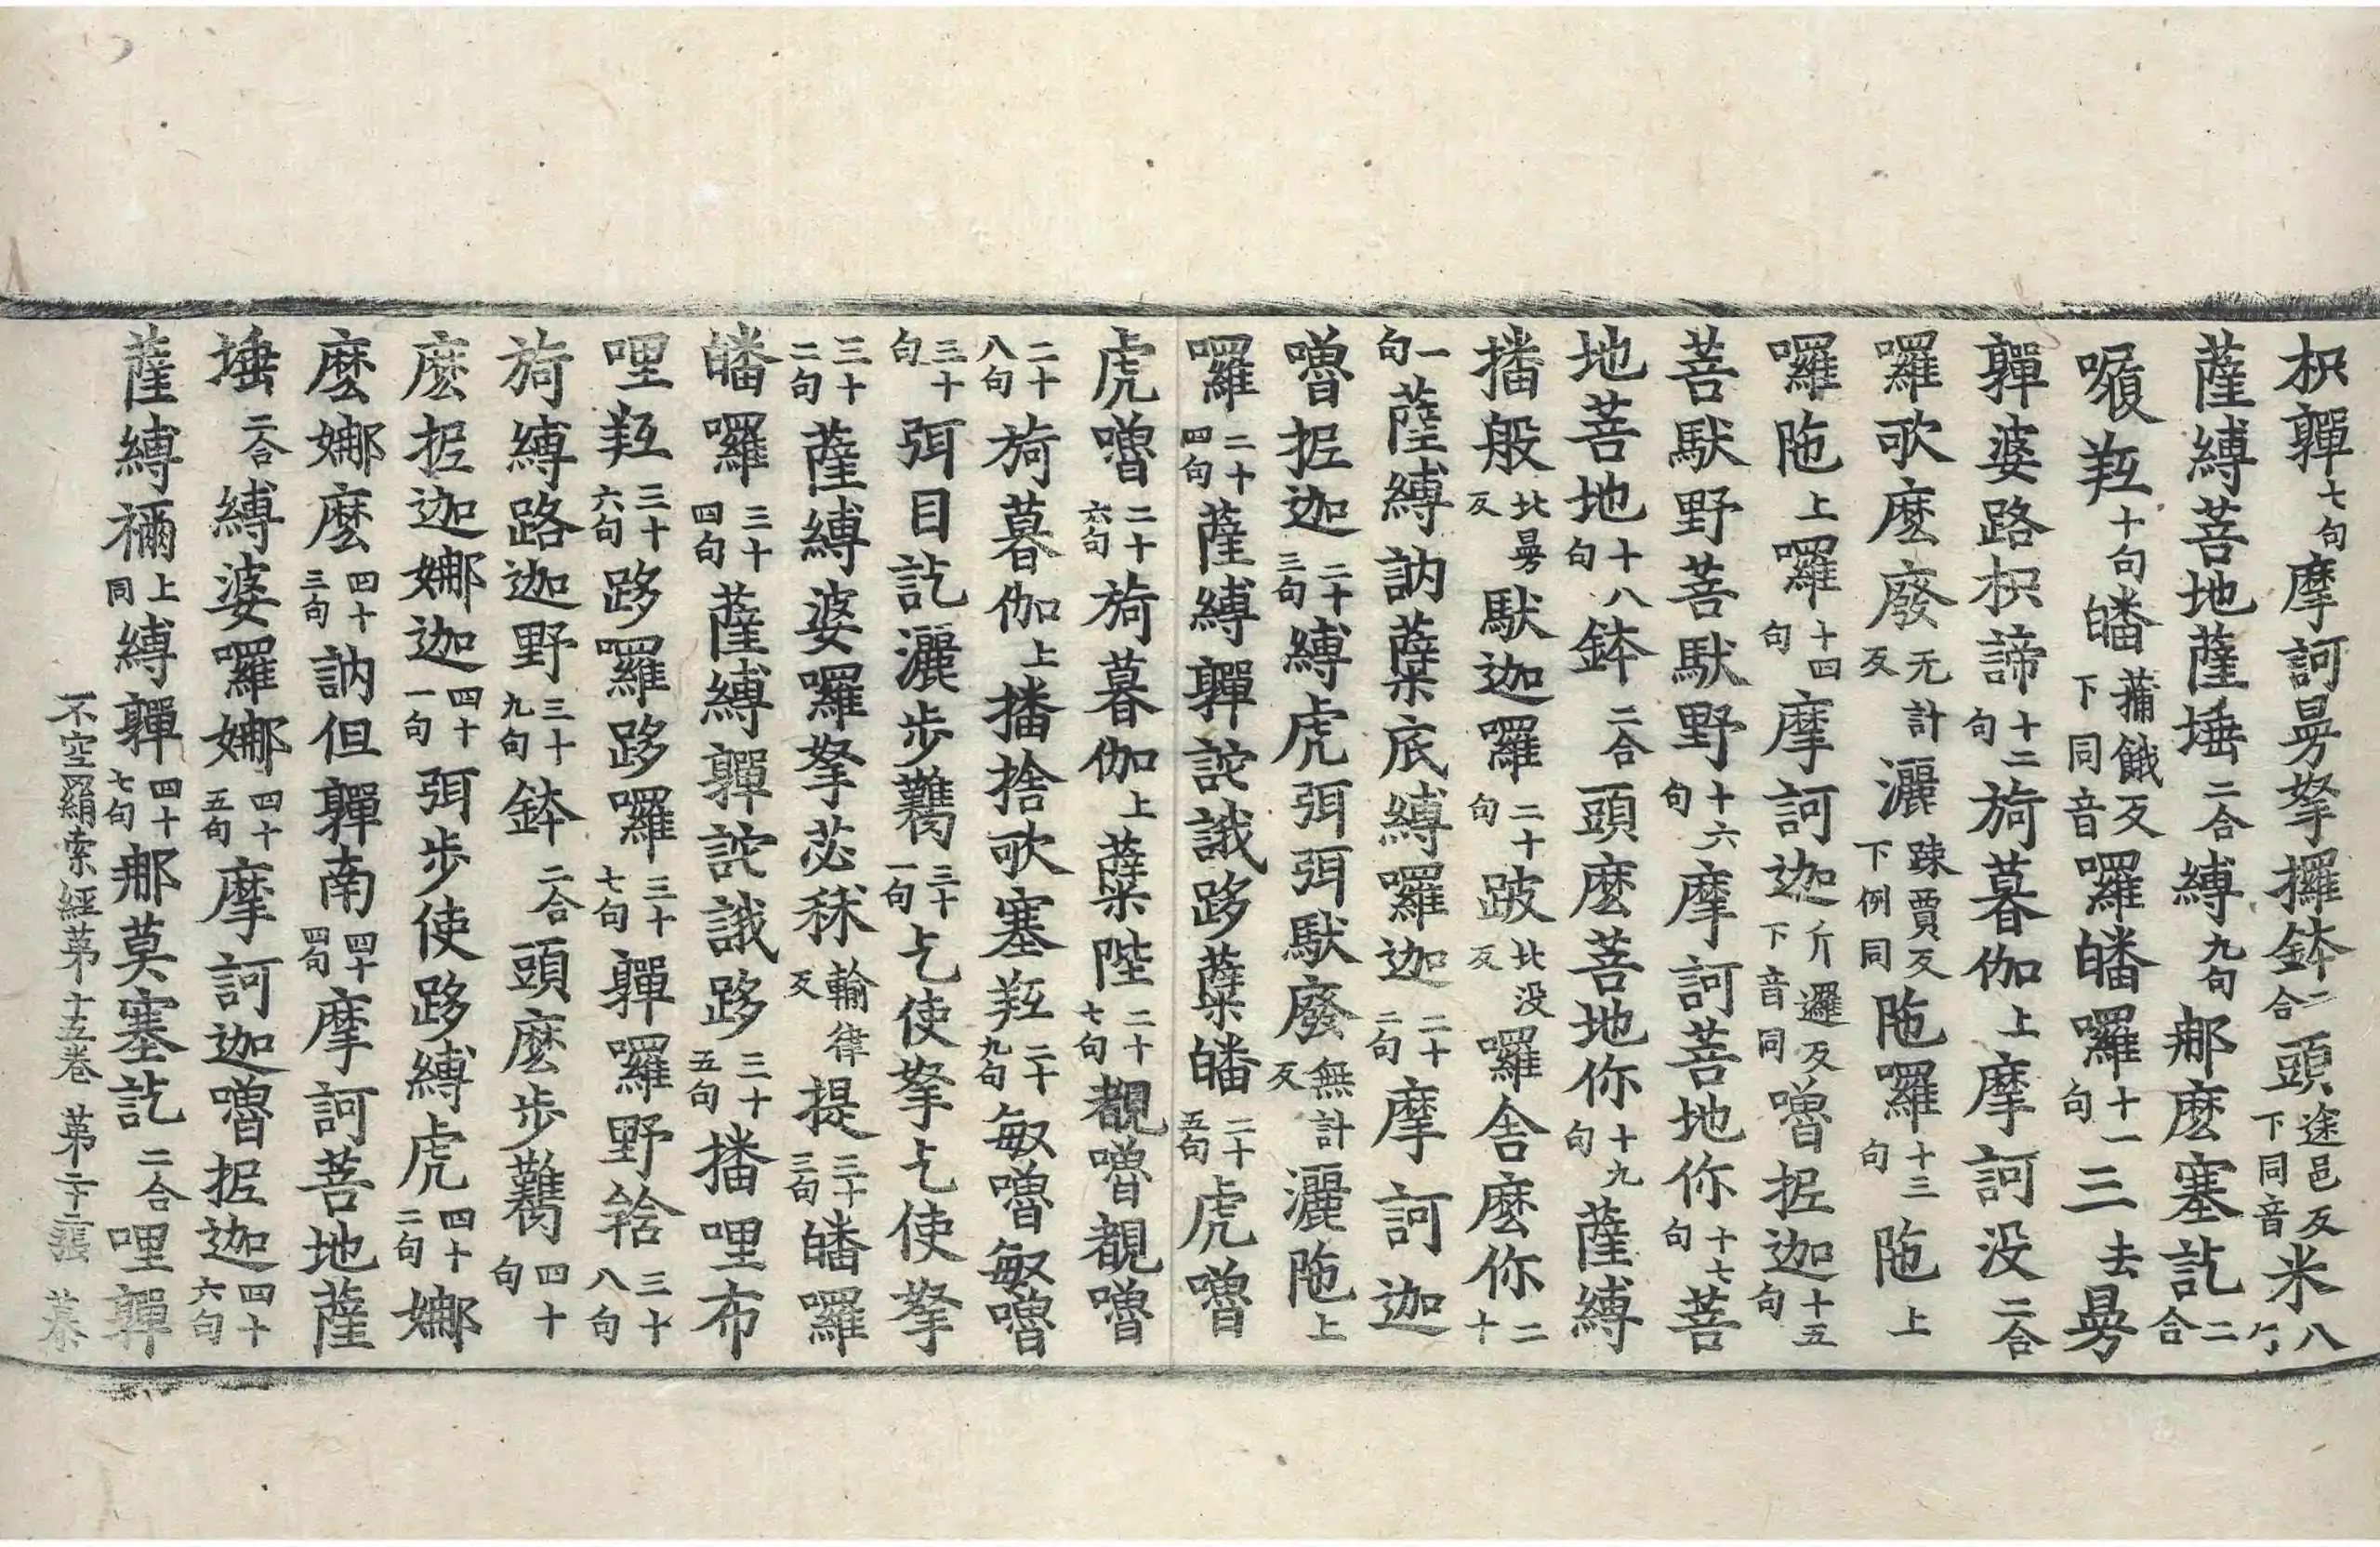 枳𩕳七句摩訶曼拏攞鉢二合頭途邑反下同音米八句
薩縛菩地薩埵二合縛九句那麽塞訖二合
㗚羝十句皤蒱餓反下同音囉皤囉十一句三去曼
𩕳婆路枳諦十二句旖暮伽上摩訶没二合
囉歌麽廢无計反灑踈賈反下例同陁囉十三句陁上
囉陁上囉十四句摩訶迦斤邏反下音同嚕抳迦十五句
菩馱野菩馱野十六句摩訶菩地你十七句菩
地菩地十八句鉢二合頭麽菩地你十九句薩縛
播般北曼反馱迦囉二十句跛北没反囉舍麽你二十
一句薩縛訥蘖底縛囉迦二十二句摩訶迦
嚕抳迦二十三句縛虎弭弭馱廢無計反灑陁上
囉二十四句薩縛𩕳詫誐跢蘖皤二十五句虎嚕
虎嚕二十六句旖暮伽上蘖陛二十七句覩嚕覩嚕
二十八句旖暮伽上播捨歌塞羝二十九句敏嚕敏嚕
三十句弭目訖灑步鸈三十一句乞使拏乞使拏
三十二句薩縛婆囉拏苾秫輸律反提三十三句皤囉
皤囉三十四句薩縛𩕳詫誐跢三十五句播哩布
哩羝三十六句跢囉跢囉三十七句𩕳囉野𦧲三十八句
旖縛路迦野三十九句鉢二合頭麽步鸈四十句
麽抳迦娜迦四十一句弭步使跢縛虎四十二句娜
麽娜麽四十三句訥但𩕳南四十四句摩訶菩地薩
埵二合縛婆囉娜四十五句摩訶迦嚕抳迦四十六句
薩縛禰上同縛𩕳四十七句那莫塞訖二合哩𩕳
不空羂索經苐十五卷 苐二十二張 慕